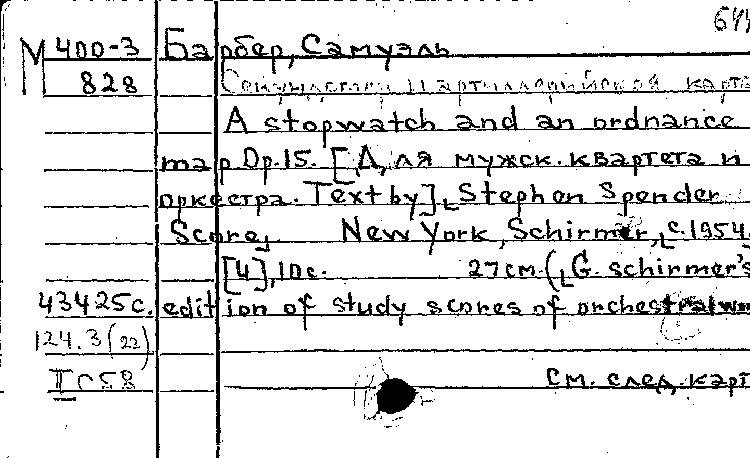 644
М 400-3 Барбер, Самуэль
828 Секундомер и артиллерийская карта
A stopwatch and an ordnance
map Op.15. [Для мужск. квартета и
оркестра. Text by] Stephen Spender
Score, New York, Schirmer, c.1954.
[4], 10 с. 27 см. (G. Schirmer's
43425с. edition of study scores of orchestral wor
124.3(22)
I С58 См. след. карт